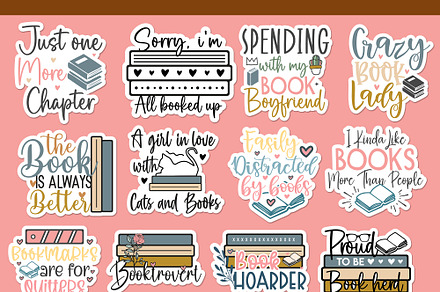 Just one
More
Chapter
Sorry, i'm
All booked up
SPENDING
with my
BOOK
Boyfriend
Crazy
Book
Lady
the
Book
IS ALWAYS
Better
A girl in love
with
Cats and Books
Easily
Distracted
by books
I Kinda Like
BOOKS
More Than People
BOOKMARKS
are for
Quitters
Booktrovert
Book
HOARDER
Proud
TO BE
Book nerd